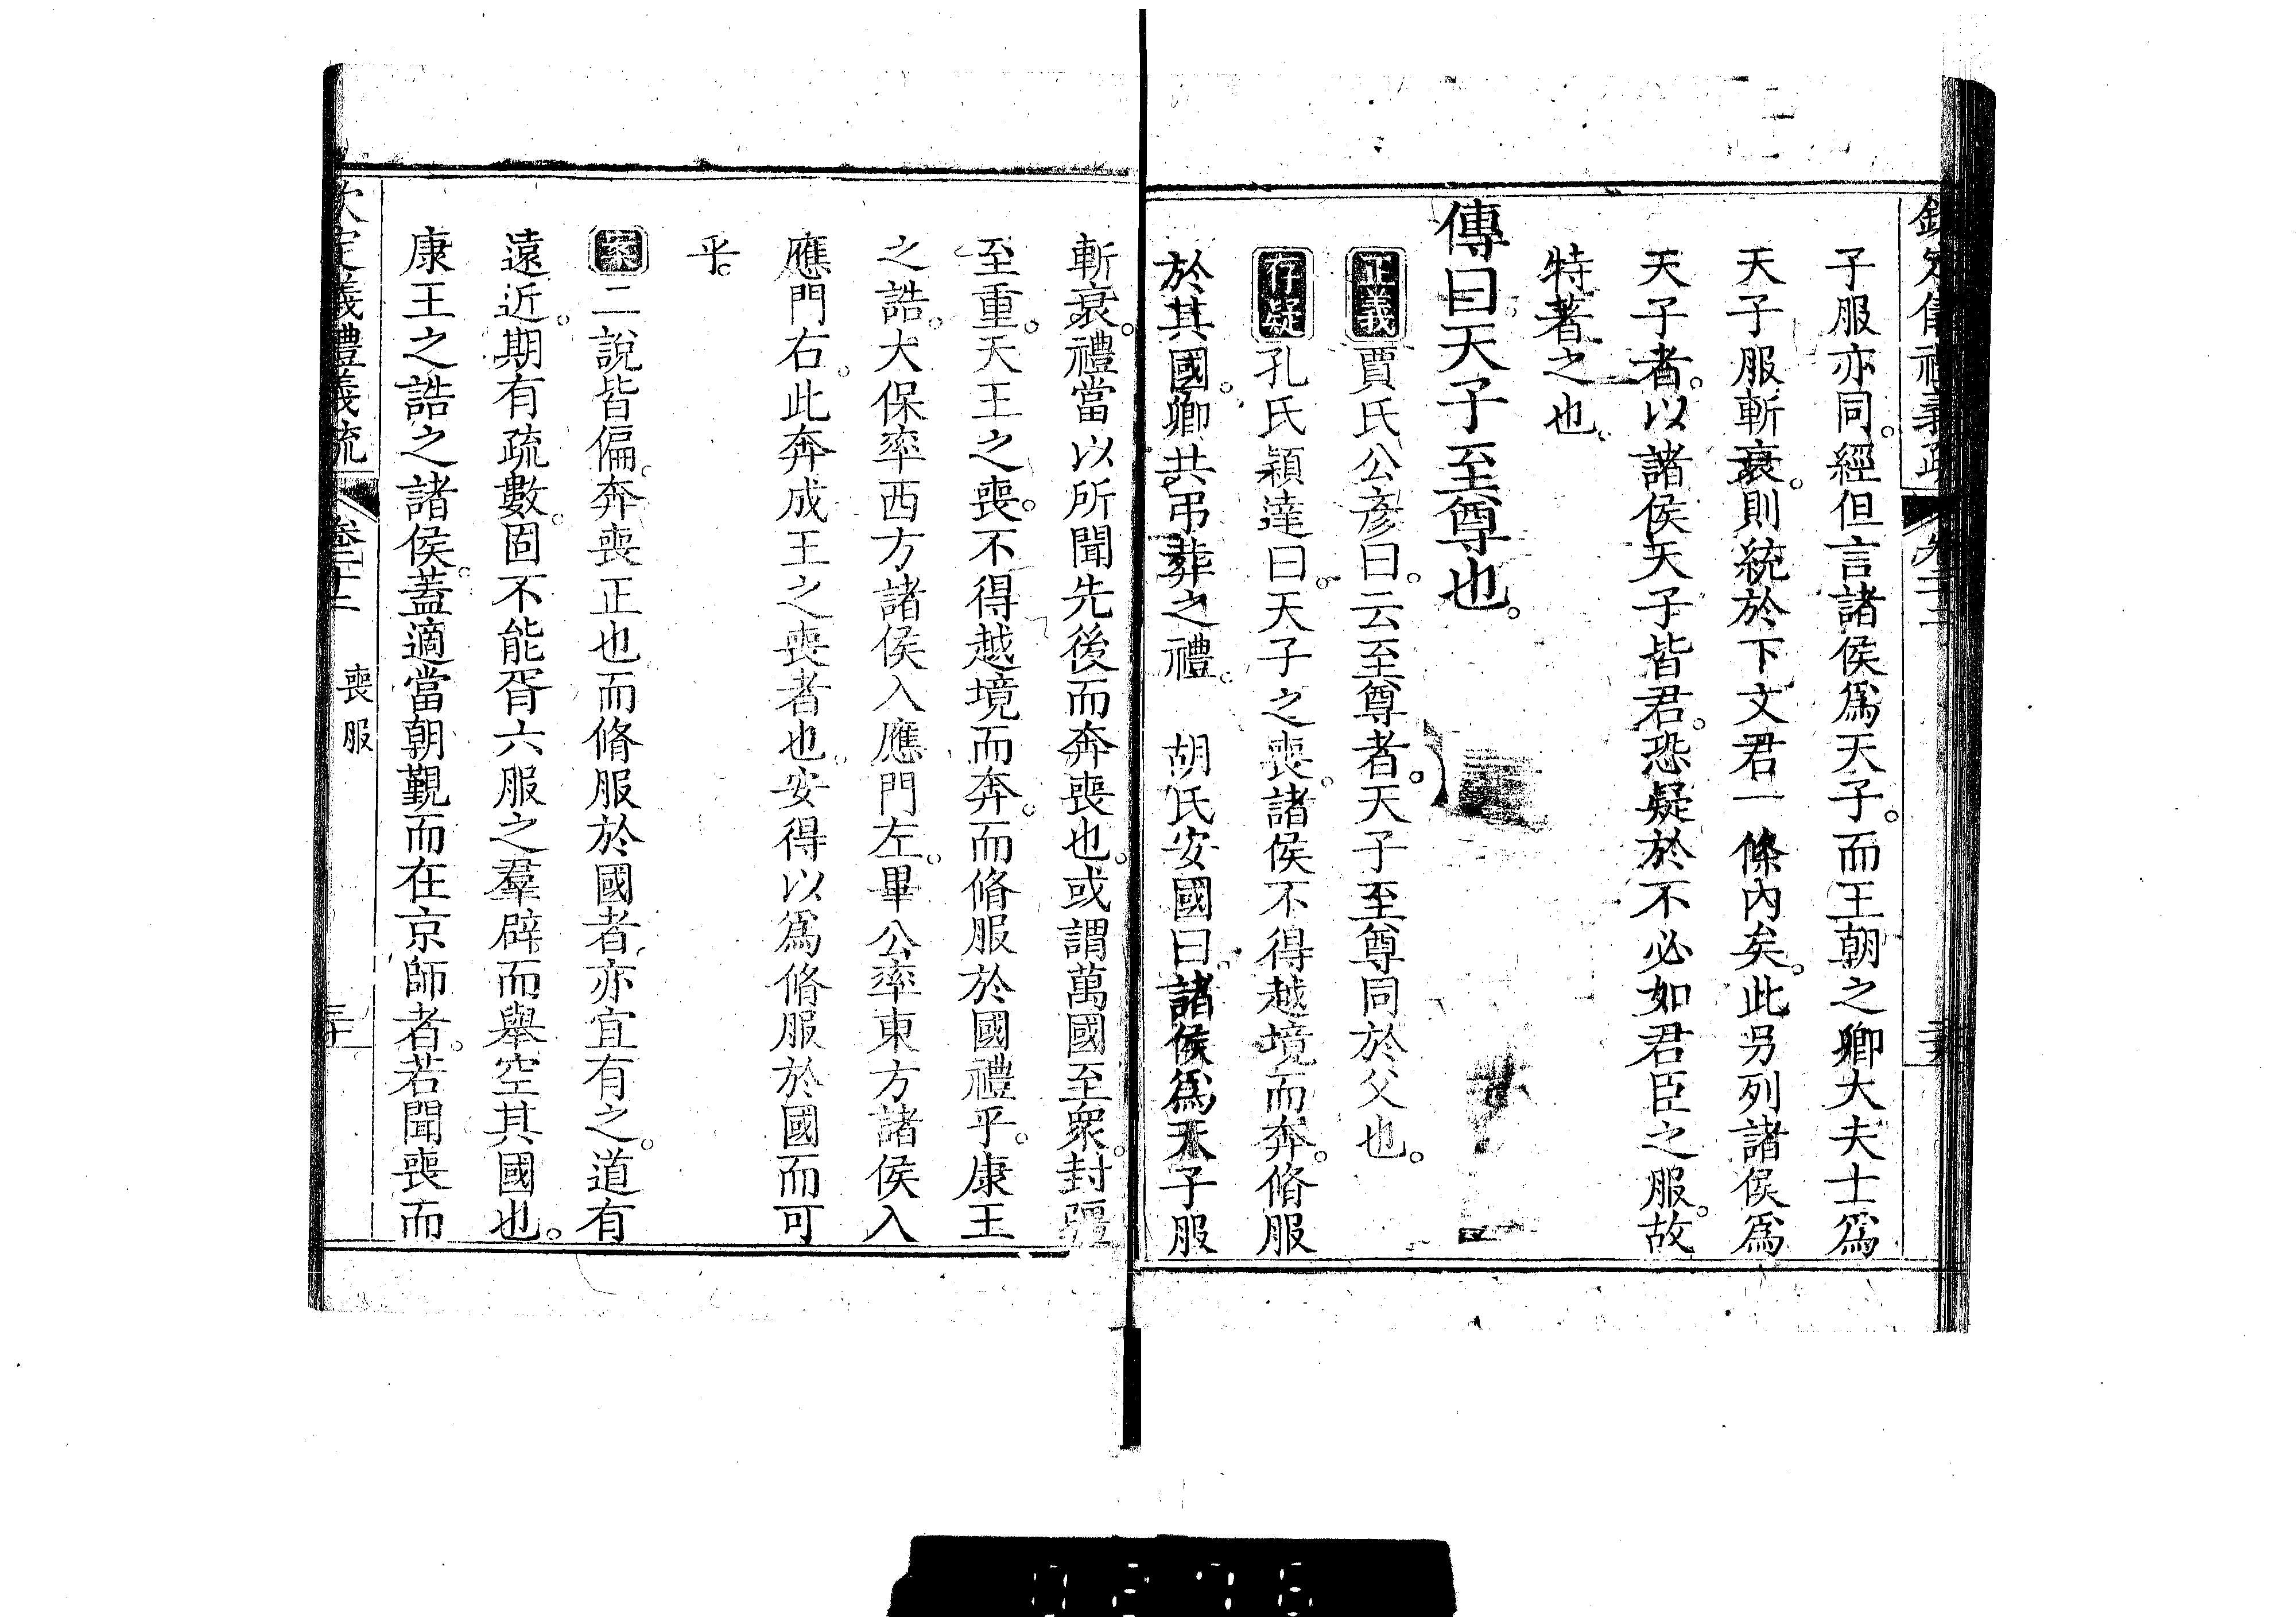 子服亦同。經但言諸侯爲天子。而王朝之卿大夫士爲
天子服斬衰。則統於下文君一條內矣。此另列諸侯爲
天子者。以諸侯天子皆君。恐疑於不必如君臣之服。故
特著之也。
傳曰。天子至尊也。
正義賈氏公彦曰。云至尊者。天子至尊同於父也。
存疑孔氏穎達曰。天子之喪。諸侯不得越境而奔。脩服
於其國。卿共弔葬之禮。 胡氏安國曰。諸侯爲天子服
斬衰。禮當以所聞先後而奔喪也。或謂萬國至衆。封疆
至重。天王之喪。不得越境而奔。而脩服於國禮乎。康王
之誥。大保率西方諸侯入應門左。畢公率東方諸侯入
應門右。此奔成王之喪者也。安得以爲脩服於國而可
乎。
案二說皆偏。奔喪正也而脩服於國者。亦宜有之。道有
遠近。期有疏數。固不能胥六服之羣辟而舉空其國也。
康王之誥之諸侯。蓋適當朝覲而在京師者。若聞喪而
欽定義禮義疏 卷二十二 喪服 三十